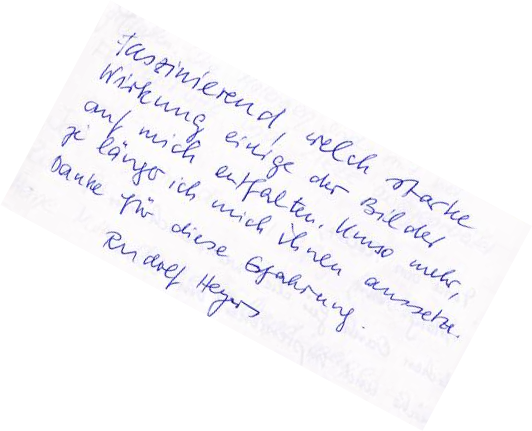 Faszinierend, welch starke
Wirkung einige der Bilder
auf mich entfalten. Umso mehr,
je länger ich mich ihnen aussetze.
Danke für diese Erfahrung.
Rudolf